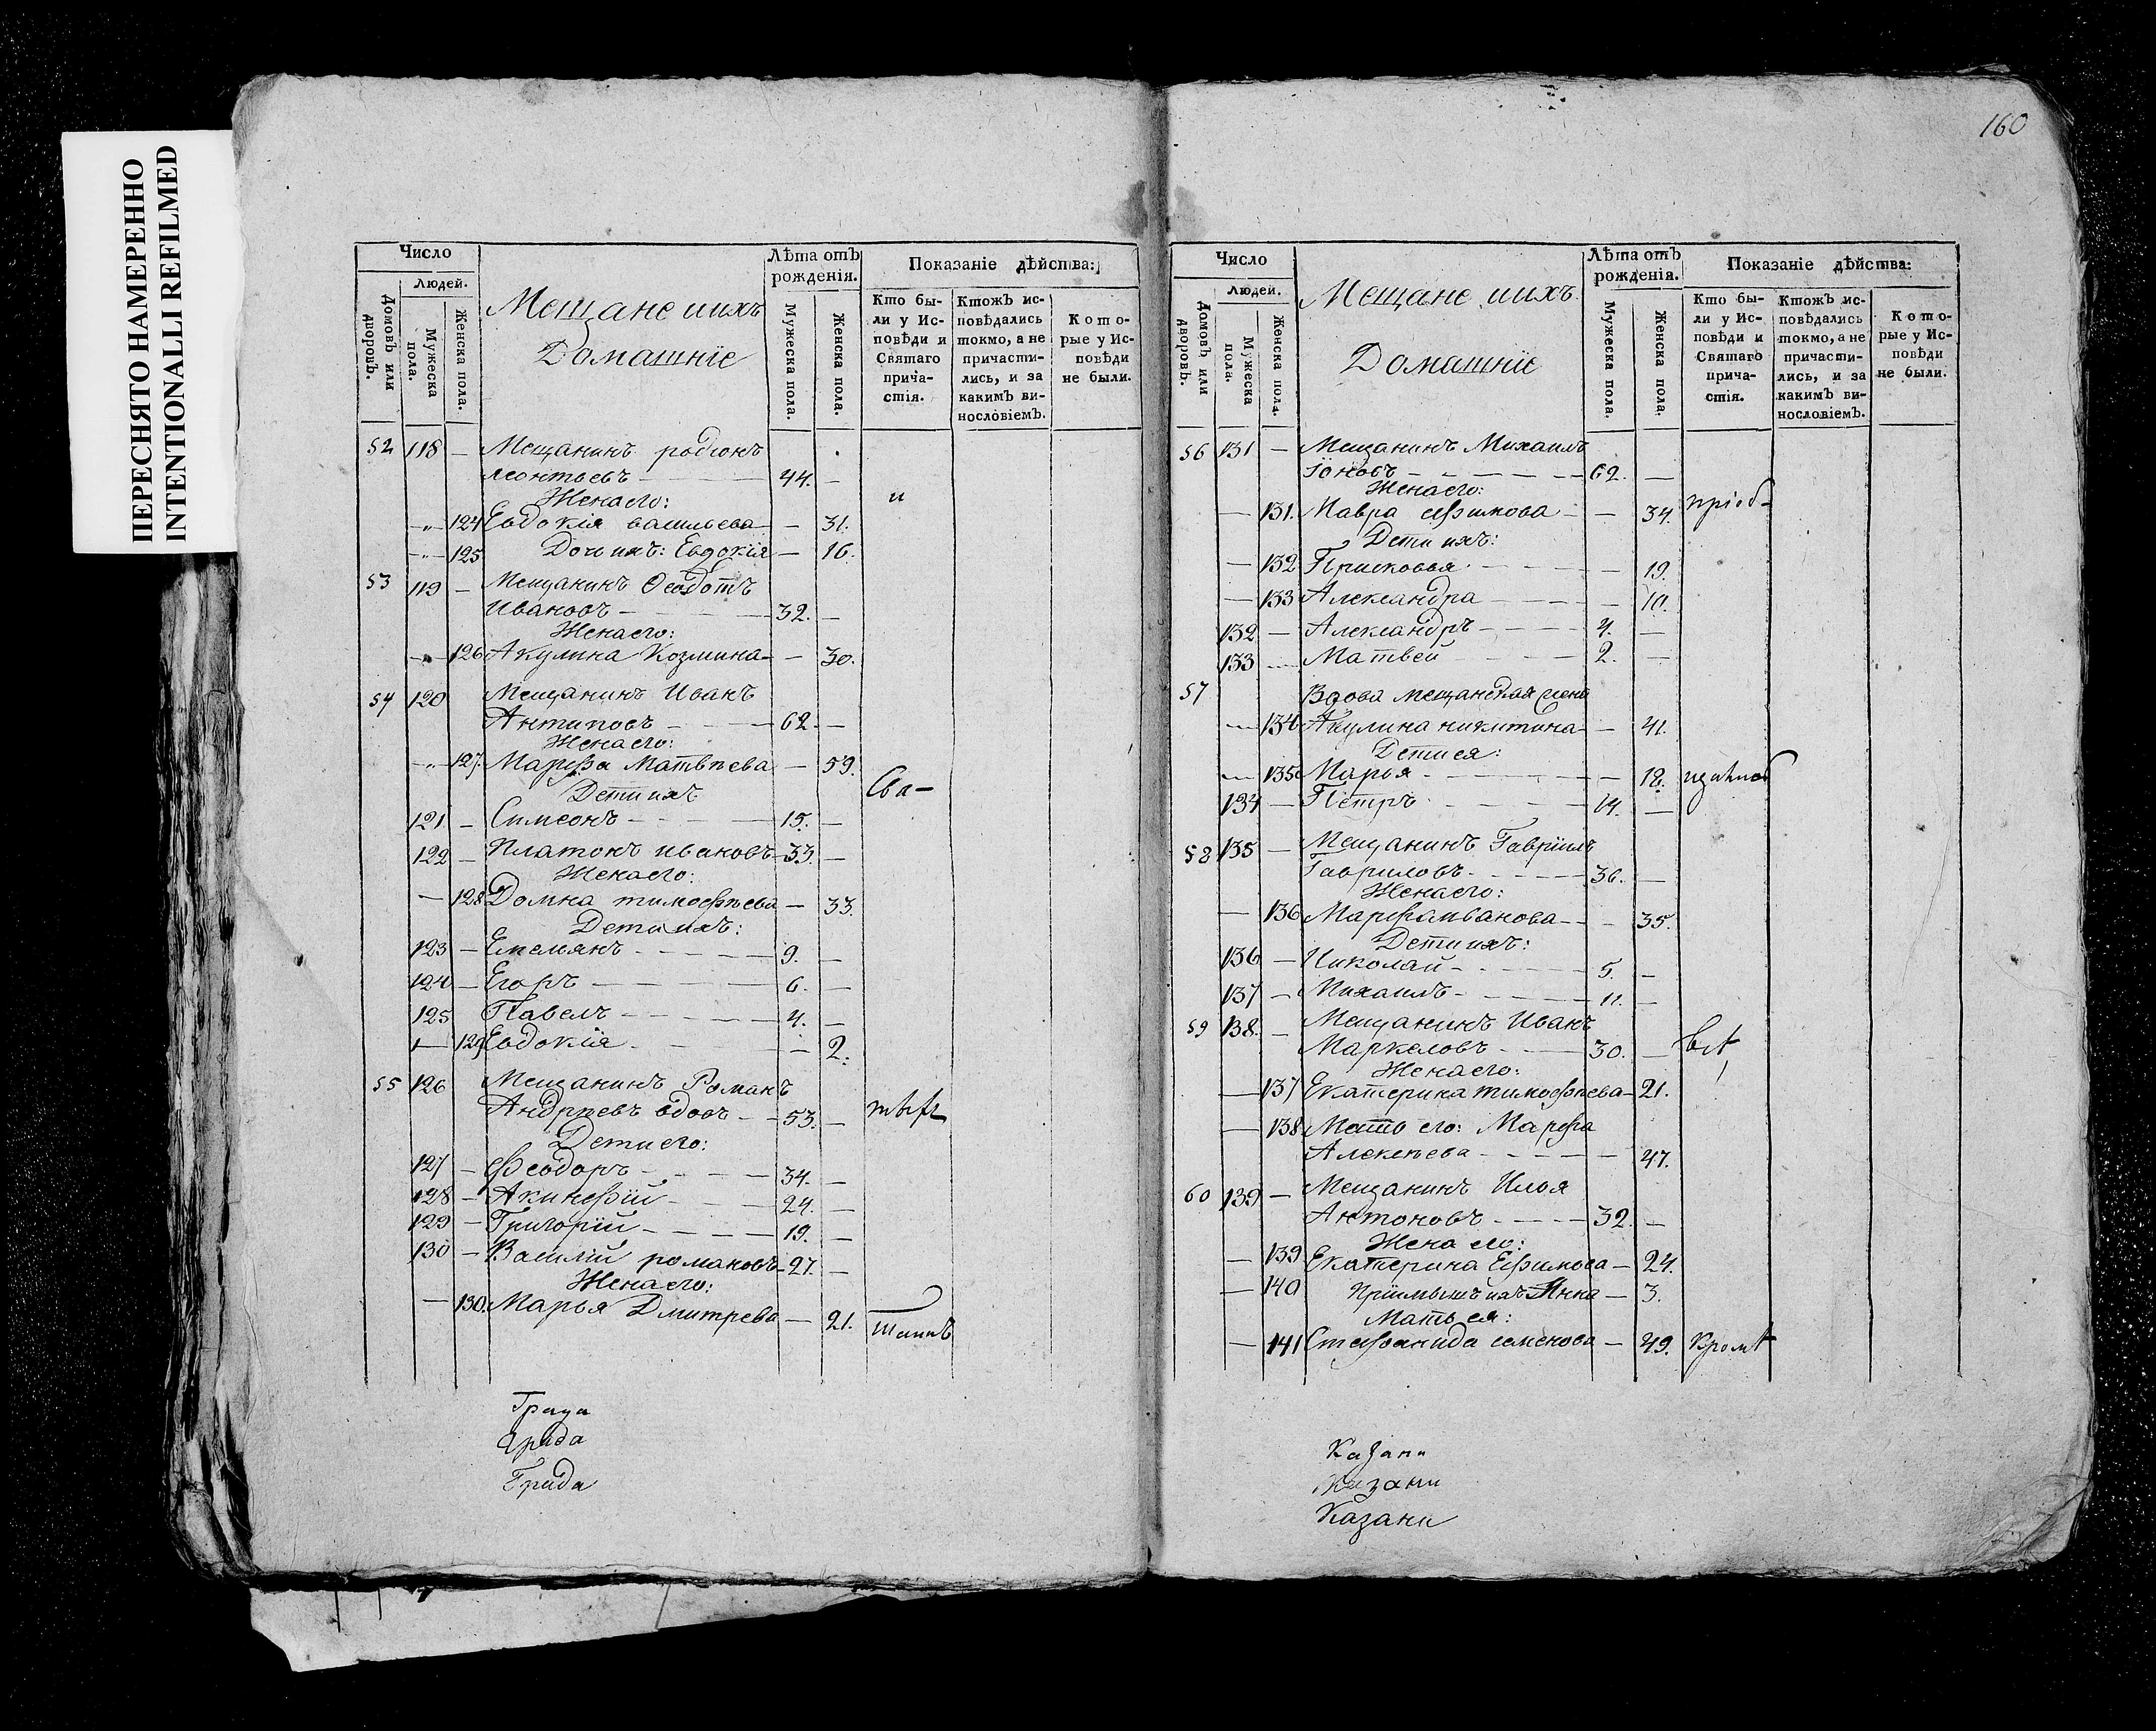 ПЕРЕСНЯТО НАМЕРЕННО
INTENTIONALLI REFILMED
Число
Людей.
Домовъ или дворовъ.
Мужеска пола.
Женска пола.
Мещане иихъ
Домашнїе
Лѣта отъ рожденія.
Мужеска пола.
Женска пола.
Показаніе дѣйства:
Кто были у Исповѣди и Святаго причастія.
Ктожъ исповѣдались токмо, а не причастились, и за какимъ винословіемъ.
Которые у Исповѣди не были.
52 118 — Мещанинъ родіонъ
леонтьевъ — 44. —
Женаего:
— 124 Евдокія васильева — 31.
и
— 125 Дочь ихъ: Евдокія — 16.
53 119 — Мещанинъ Ѳеодотъ
Ивановъ — 32. —
Женаего:
— 126 Акулина Козмина — 30.
54 120 Мещанинъ Иванъ
Антиповъ — 62. —
Женаего:
— 127. Марфа Матвѣева — 59.
Сва-
Дети ихъ
121 — Симеонъ — 15. —
122 — Платонъ ивановъ — 33. —
Женаего:
— 128 Домна тимофѣева — 33.
Дети ихъ:
123 — Емельянъ — 9. —
124 — Егоръ — 6. —
125 Павелъ — 4. —
— 129 Евдокія — 2.
55 126 Мещанинъ Романъ
Андрѣевъ вдовъ — 53. —
Дети его:
127 — Феодоръ — 34. —
128 — Акинфїй — 24. —
129 — Григорїй — 19. —
130 — Василїй романовъ — 27. —
Женаего:
— 130. Марья Дмитрева — 21.
Града
Града
160
Число
Людей.
Домовъ или дворовъ.
Мужеска пола.
Женска пола.
Мещане иихъ
Домашнїе
Лѣта отъ рожденія.
Мужеска пола.
Женска пола.
Показаніе дѣйства:
Кто были у Исповѣди и Святаго причастія.
Ктожъ исповѣдались токмо, а не причастились, и за какимъ винословіемъ.
Которые у Исповѣди не были.
56 131 — Мещанинъ Михаилъ
Їоновъ — 62. —
Женаего:
— 131. Мавра ефимова — 34.
пріоб-
Дети ихъ:
— 132 Прасковья — 19.
— 133 Александра — 10.
132 — Александръ — 4. —
133 — Матвей — 2. —
57 Вдова мещанская жена
— 134 Акулина никитина — 41.
Дети ея:
— 135 Марья — 18.
134 — Петръ — 14. —
58 135 — Мещанинъ Гаврїилъ
Гавриловъ — 36. —
Женаего:
— 136 Марфа иванова — 35.
Дети ихъ:
136 — Николай — 5. —
137 — Михаилъ — 11. —
59 138. — Мещанинъ Иванъ
Маркеловъ — 30. —
всѣ
Женаего:
— 137 Екатерина тимофѣева — 21.
— 138 Мать его: Марфа
Алексѣева — 47.
60 139 — Мещанинъ Илья
Антоновъ — 32. —
Жена его:
— 139 Екатерина Ефимова — 24.
— 140 Прїимышъ ихъ Анна — 3.
Мать ея:
— 141 Стефанида семенова — 49.
Кромѣ
Казани
Казани
Казани